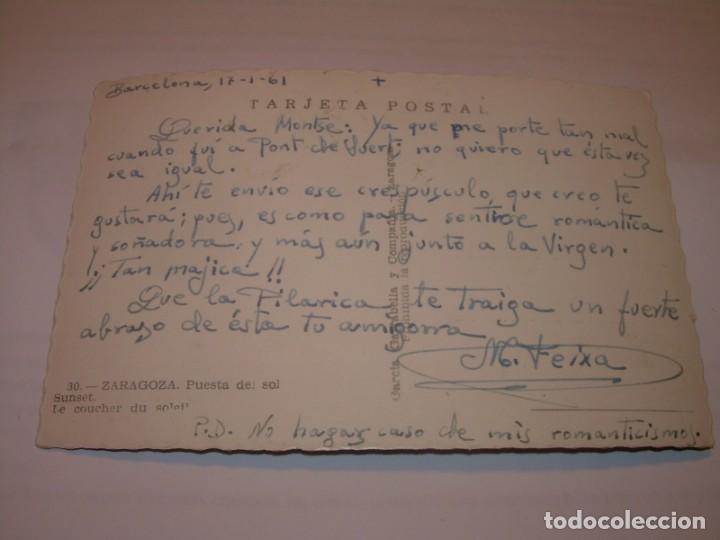 Barcelona, 17-1-61
+
TARJETA POSTAL
Querida Montse: Ya que me porte tan mal
cuando fuí a Pont de Suert; no quiero que ésta vez
sea igual.
Ahí te envío ese crepúsculo, que creo te
gustará; pues, es como para sentirse romántica
y soñadora, y más aún junto a la Virgen.
¡¡Tan majica!!
Que la Pilarica te traiga un fuerte
abrazo de ésta tu amigorra
M. Feixa
30. — ZARAGOZA. Puesta del sol
Sunset.
Le coucher du soleil
P.D. No hagas caso de mis romanticismos.
García Garrabella y Compañía. - Zaragoza
Prohibida la reproducción
todocoleccion.net